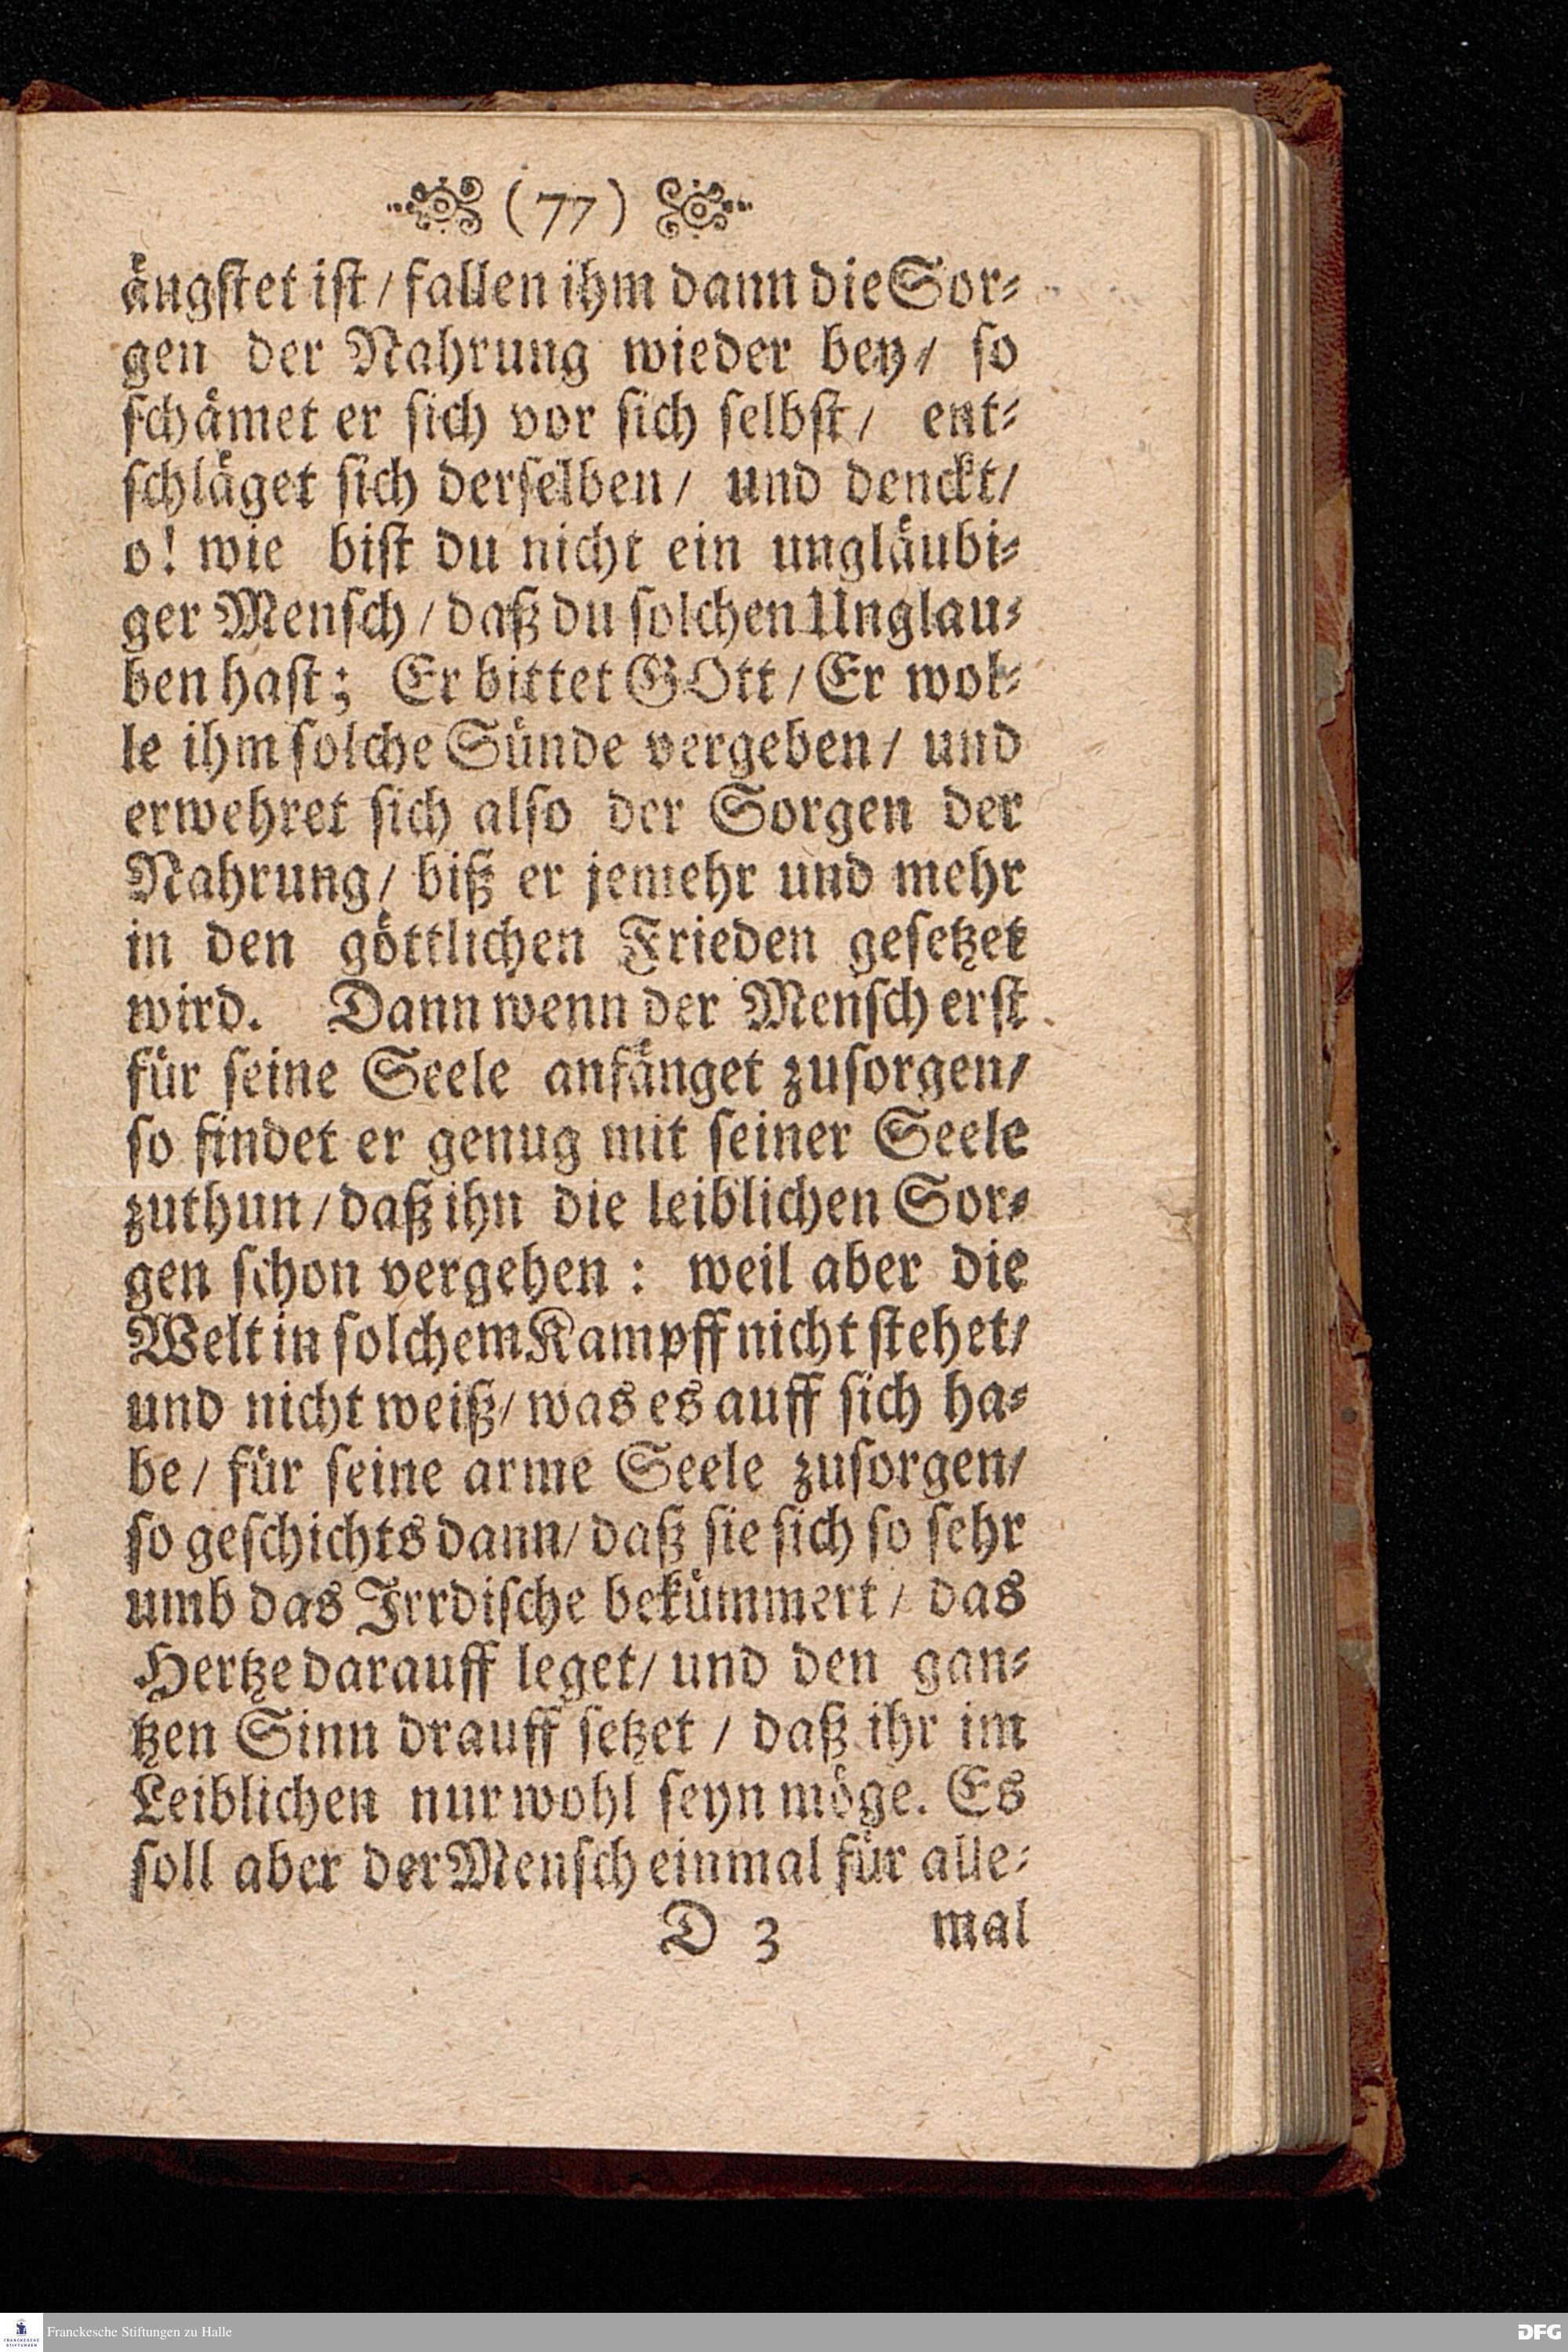 (77)
ängstet ist / fallen ihm dann die Sor⸗
gen der Nahrung wieder bey / so
schämet er sich vor sich selbst / ent⸗
schläget sich derselben / und denckt /
o! wie bist du nicht ein ungläubi⸗
ger Mensch / daß du solchen Unglau⸗
ben hast; Er bittet GOtt / Er wol⸗
le ihm solche Sünde vergeben / und
erwehret sich also der Sorgen der
Nahrung / biß er jemehr und mehr
in den göttlichen Frieden gesetzet
wird. Dann wenn der Mensch erst
für seine Seele anfänget zusorgen /
so findet er genug mit seiner Seele
zuthun / daß ihn die leiblichen Sor⸗
gen schon vergehen : weil aber die
Welt in solchem Kampff nicht stehet /
und nicht weiß / was es auff sich ha⸗
be / für seine arme Seele zusorgen /
so geschichts dann / daß sie sich so sehr
umb das Irrdische bekümmert / das
Hertze darauff leget / und den gan⸗
tzen Sinn drauff setzet / daß ihr im
Leiblichen nur wohl seyn möge. Es
soll aber der Mensch einmal für alle⸗
D 3 mal
FRANCKESCHE
STIFTUNGEN
Franckesche Stiftungen zu Halle
DFG